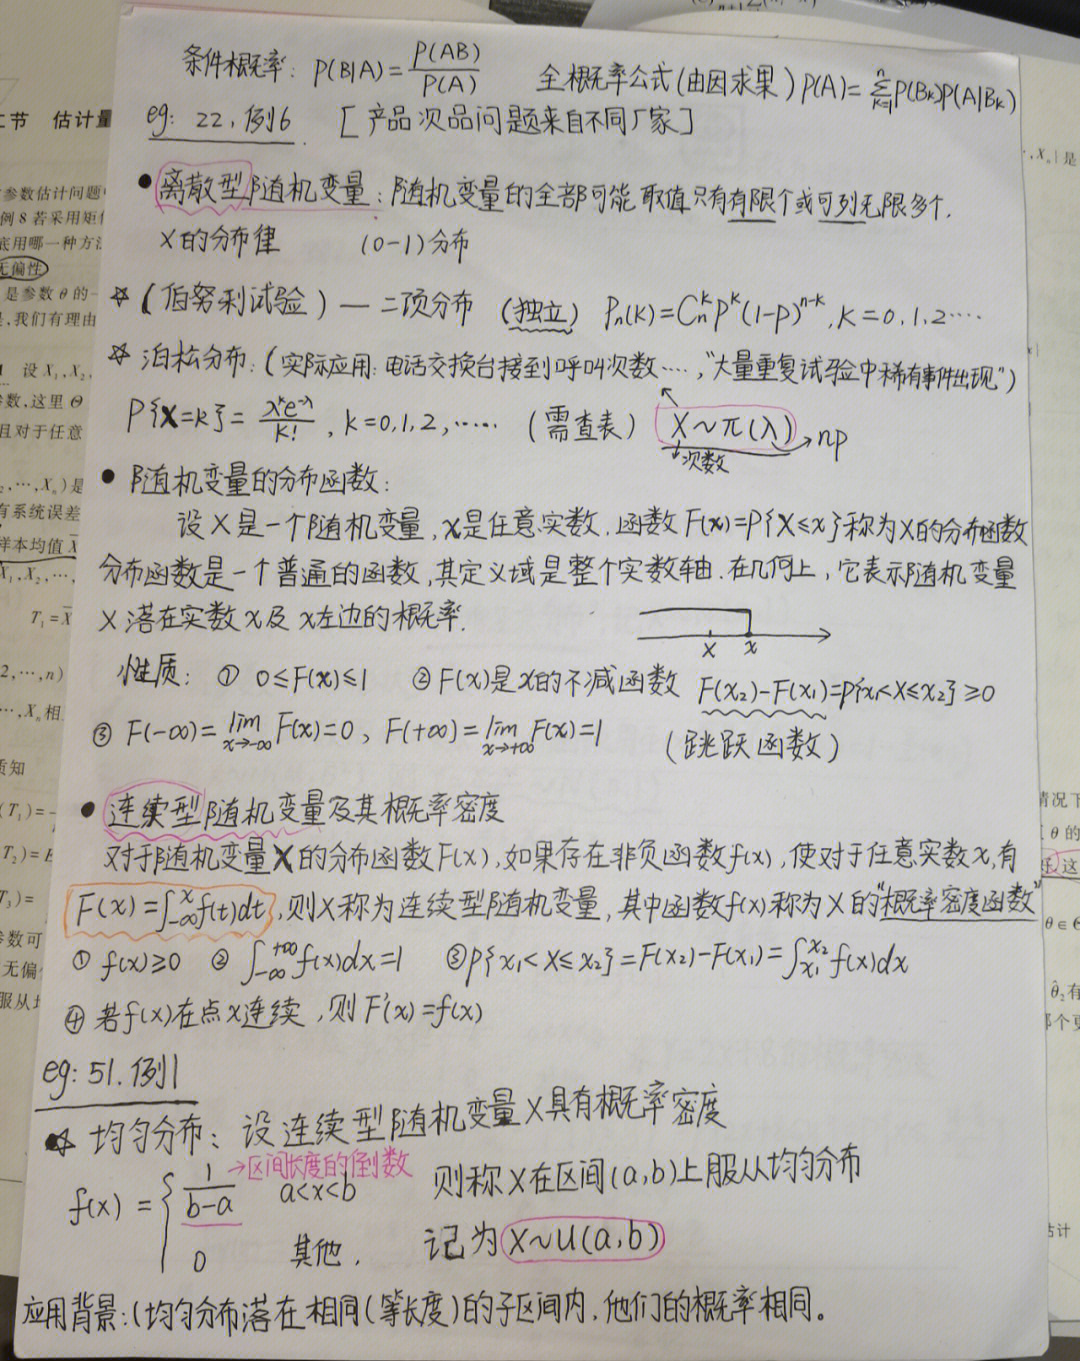 条件概率: P(B|A)=P(AB)/P(A) 全概率公式(由因求果) P(A)=∑ⁿₖ₌₁P(Bₖ)P(A|Bₖ)
eg: 22, 例6 [产品次品问题来自不同厂家]
• 离散型随机变量: 随机变量的全部可能取值只有有限个或可列无限多个.
X的分布律 (0-1)分布
☆ (伯努利试验) — 二项分布 (独立) Pₙ(K)=CₙᵏPᵏ(1-P)ⁿ⁻ᵏ, K=0,1,2····
☆ 泊松分布: (实际应用: 电话交换台接到呼叫次数····, "大量重复试验中稀有事件出现")
P{X=k}=λᵏe^(-λ)/k! , k=0,1,2,····· (需查表) X~π(λ) → np
次数
• 随机变量的分布函数:
设X是一个随机变量, x是任意实数. 函数F(x)=P{X≤x}称为X的分布函数
分布函数是一个普通的函数, 其定义域是整个实数轴. 在几何上, 它表示随机变量
X落在实数x及x左边的概率.
X x
性质: ① 0≤F(x)≤1 ② F(x)是x的不减函数 F(x₂)-F(x₁)=P{x₁<X≤x₂}≥0
③ F(-∞)=lim x→-∞ F(x)=0, F(+∞)=lim x→+∞ F(x)=1 (跳跃函数)
• 连续型随机变量及其概率密度
对于随机变量X的分布函数F(x), 如果存在非负函数f(x), 使对于任意实数x, 有
F(x)=∫₋∞ˣf(t)dt, 则X称为连续型随机变量, 其中函数f(x)称为X的"概率密度函数"
① f(x)≥0 ② ∫₋∞⁺∞f(x)dx=1 ③ P{x₁<X≤x₂}=F(x₂)-F(x₁)=∫ₓ₁ˣ²f(x)dx
④ 若f(x)在点x连续, 则F'(x)=f(x)
eg: 51. 例1
☆ 均匀分布: 设连续型随机变量X具有概率密度
→区间长度的倒数
f(x)={ 1/(b-a) a<x<b 则称X在区间(a,b)上服从均匀分布
0 其他. 记为X~U(a,b)
应用背景: (均匀分布落在相同(等长度)的子区间内, 他们的概率相同。
节 估计量
参数估计问题
例8若采用矩
底用哪一种方
无偏性
是参数θ的
是,我们有理由
设X₁,X₂,
数,这里Θ
且对于任意
有系统误差
样本均值X̄
X₁,X₂,···,
T₁=X̄
2,···,n)
···,Xₙ相
质知
参数可
无偏
服从
情况下
θ的
这
θ∈Θ
θ̂₂有
那个更
估计